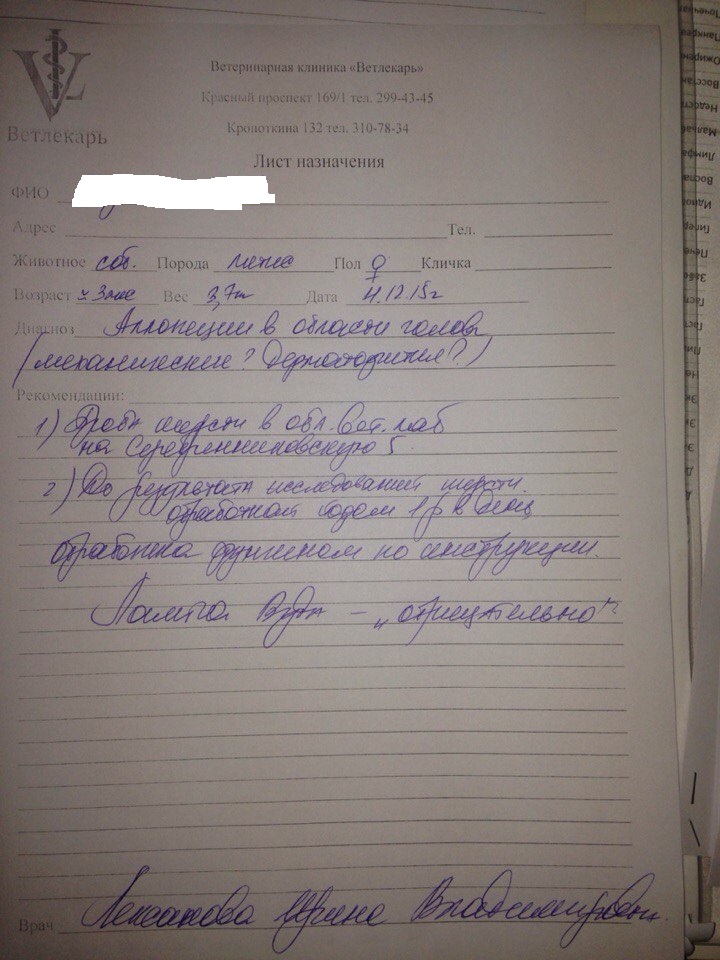 Ветеринарная клиника «Ветлекарь»
Красный проспект 169/1 тел. 299-43-45
Кропоткина 132 тел. 310-78-34
Ветлекарь
Лист назначения
ФИО
Адрес Тел.
Животное соб. Порода метис Пол ♀ Кличка
Возраст ≈ 3мес Вес 3,7кг Дата 4.12.15г
Диагноз Аллопеции в области головы
(механические? Дерматофития?)
Рекомендации:
1) Проба шерсти в обл. вет. лаб
на Серебренниковскую 5.
2) До результата исследований шерсти
обработка йодом 1 р в день
обработка фунгином по инструкции.
Лампа Вуда – „отрицательно“
Врач Ирина Владимировна